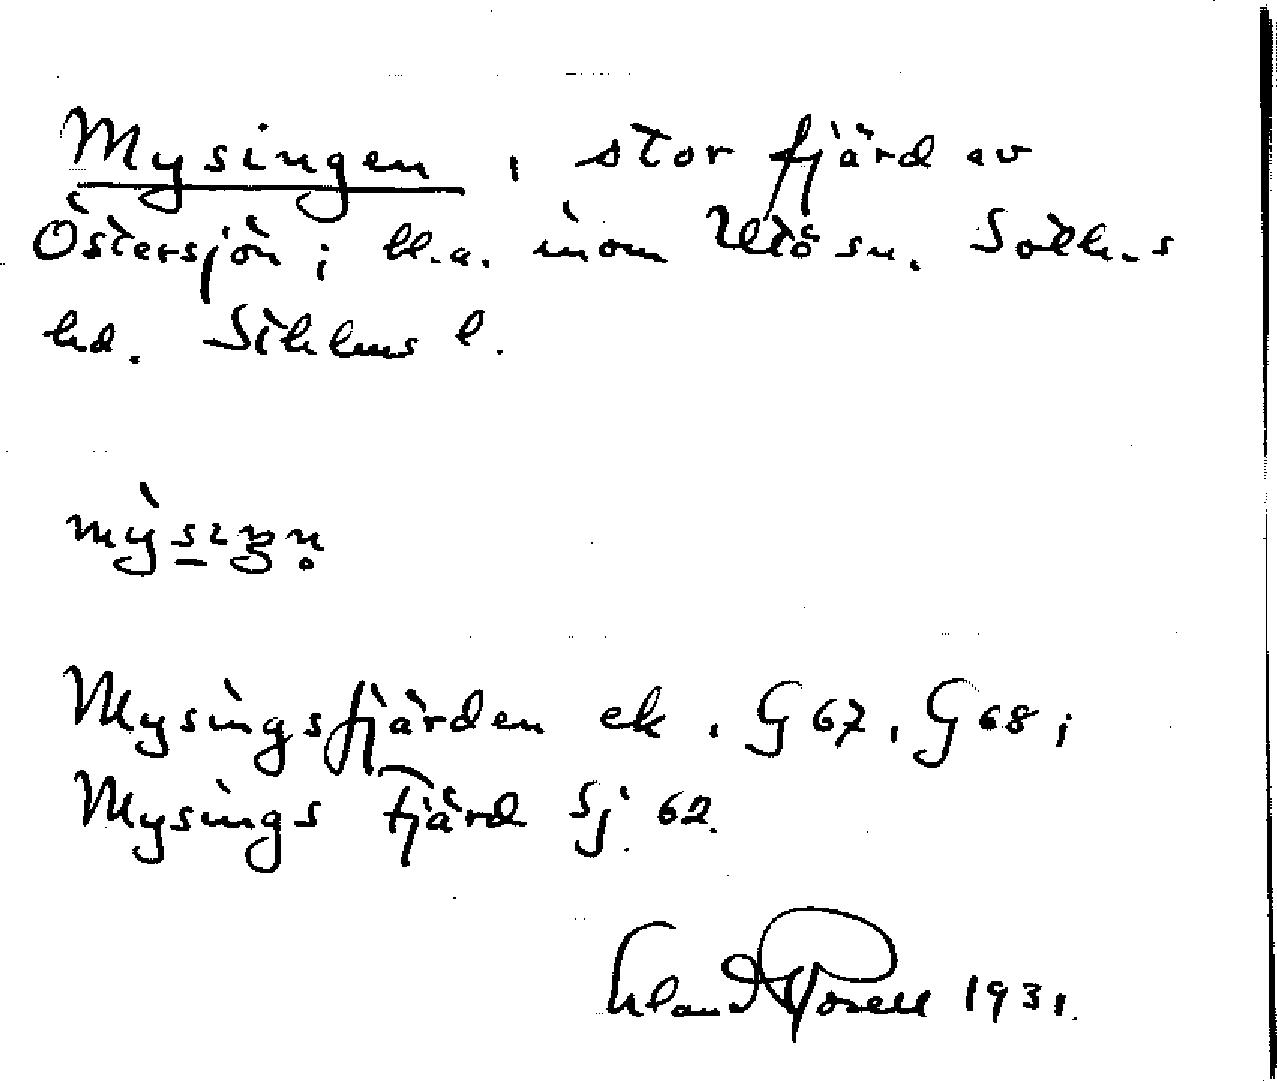 Mysingen, stor fjärd av
Östersjön; bl.a. inom Utö sn. Sothms
hd. Sthlms l.
mỳsıŋn̥
Mysingsfjärden ek. G 67, G 68;
Mysings fjärd Sj. 62.
Erland Rosell 1931.